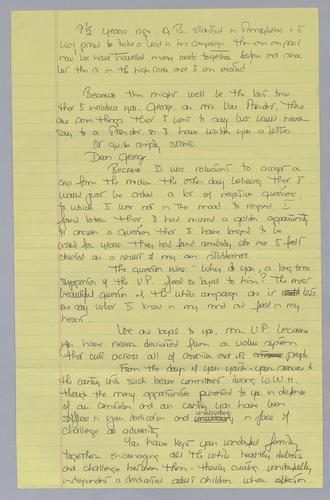 9½ years ago G.B. started in Pennsylvania &
was proud to take a lead in his campaign
now we have traveled many roads together before and since
but this is on the high road and I am
Because this might well be the last time
that I introduce you, George, as our Vice President, there
are some things that I want to say but would never
say to a President, so I have written you a letter.
It quite simply states
Dear George
Because I was reluctant to accept a
call from the media the other day believing that I
would just be asked a lot of negative questions,
to which I was not in the mood to respond, I
found later that I had missed a golden opportunity
to answer a question that I have longed to be
asked for years. They had found somebody else and I feel
cheated as a result of my own stubbornness.
The question was: Why do you a long time
supporter of the V.P. feel so loyal to him? The most
beautiful question of the whole campaign
say what I know in my mind and feel in my
heart.
We are loyal to you, Mr. V.P. because
you have never deviated from a value system
that cuts across all of America and its people.
From the days of your youth - your service to
the country with such brave commitment during W.W.II.
through the many opportunities pursued by you in defense
of our convictions and our country you have been
in your dedication and in face of
challenge or adversity.
You have kept your wonderful family
together encouraging all the while healthy debate
and challenge between them - thereby creating wonderfully
independent & dedicated adult children whose affection